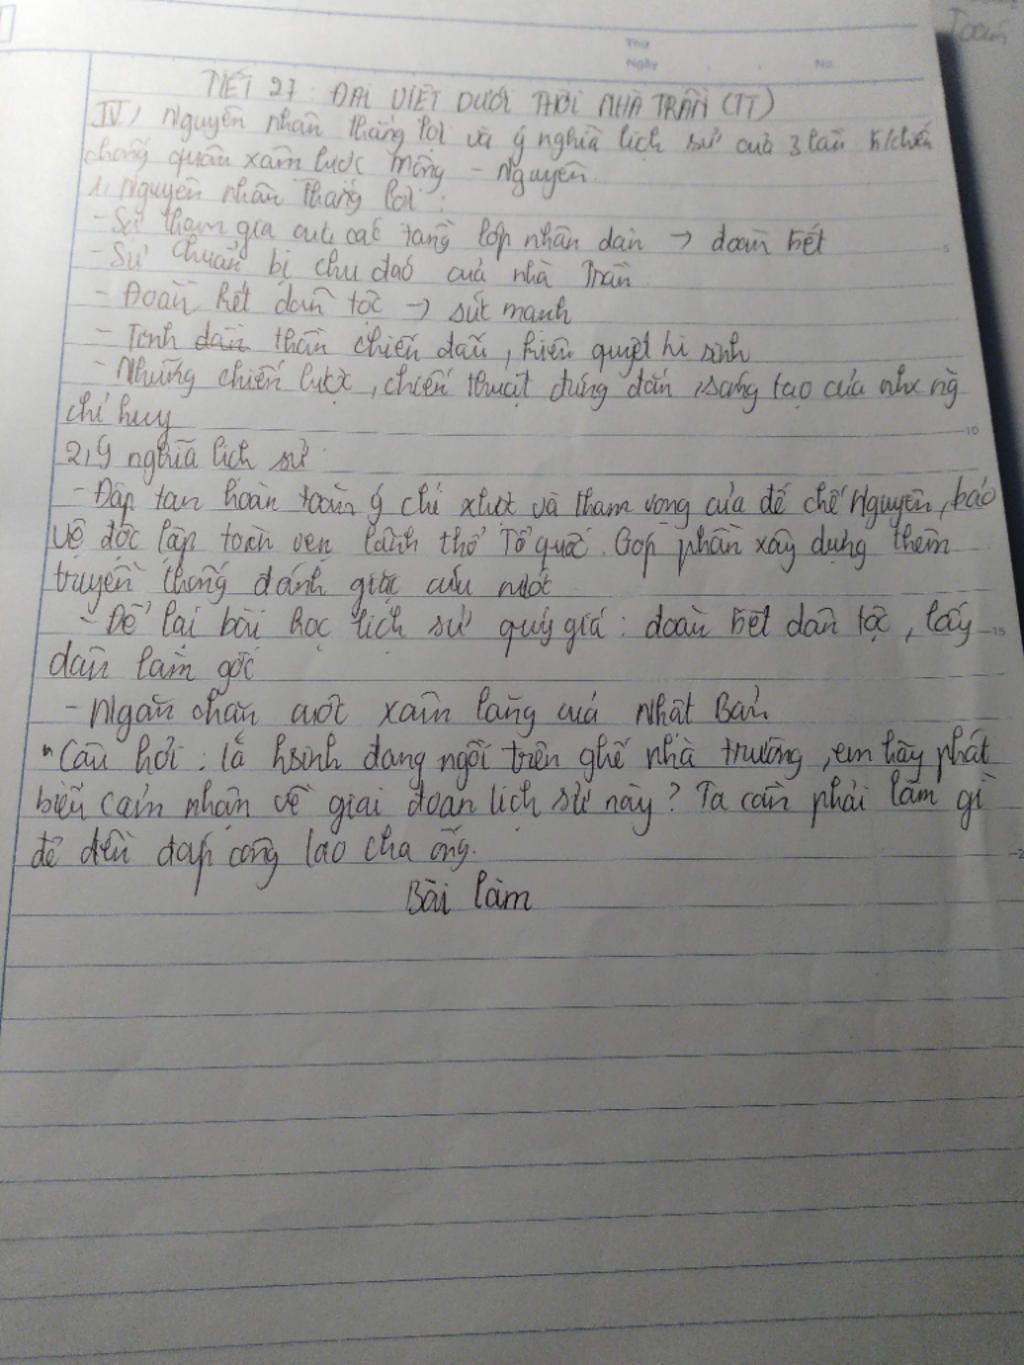 Toán
Thứ
Ngày No.
TIẾT 27: ĐẠI VIỆT DƯỚI THỜI NHÀ TRẦN (TT)
IV/ Nguyên nhân thắng lợi và ý nghĩa lịch sử của 3 lần k/chiến
chống quân xâm lược Mông - Nguyên.
1, Nguyên nhân thắng lợi:
- Sự tham gia của các tầng lớp nhân dân → đoàn kết
- Sự chuẩn bị chu đáo của nhà Trần
- Đoàn kết dân tộc → sức mạnh
- Tinh dân thần chiến đấu, hiên quyết hi sinh
- Những chiến lược, chiến thuật đúng đắn, sáng tạo của
chỉ huy
2, Ý nghĩa lịch sử:
- Đập tan hoàn toàn ý chí xlược và tham vọng của đế chế Nguyên, bảo
vệ độc lập toàn vẹn lãnh thổ Tổ quốc. Góp phần xây dựng thêm
truyền thống đánh giặc cứu nước
- Để lại bài học lịch sử quý giá: đoàn kết dân tộc, lấy
dân làm gốc
- Ngăn chặn cuộc xâm lăng của Nhật Bản
"Câu hỏi: là hsinh đang ngồi trên ghế nhà trường, em hãy phát
biểu cảm nhận về giai đoạn lịch sử này? Ta cần phải làm gì
để đền đáp công lao cha ông.
Bài làm